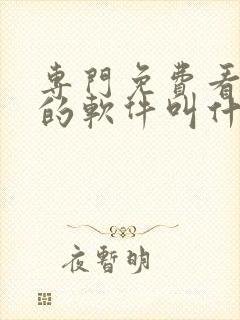 專門免費看
的軟件叫什
夜暫明